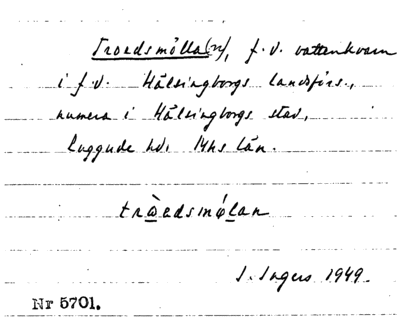 Troedsmölla(n), f.d. vattenkvarn
i f.d. Hälsingborgs landsförs.,
numera i Hälsingborgs stad,
Luggude hd. Mhs län.
tròedsmǿlan
I. Ingers 1949.
Nr 5701.